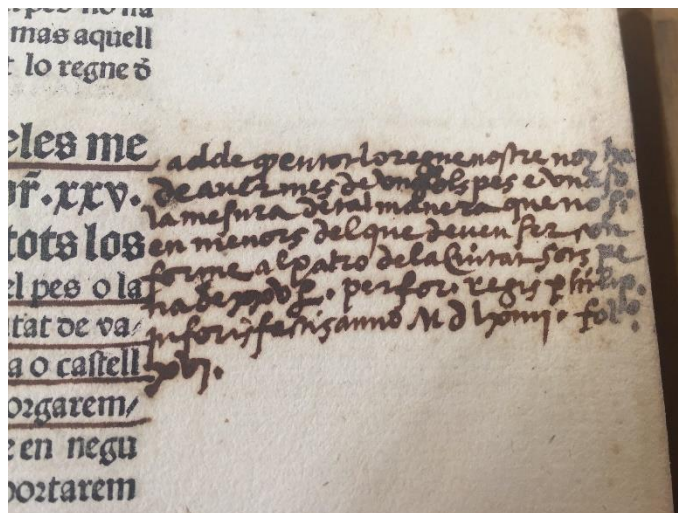 mas aquell
lo regne d̄
eles me
or̃. xxv.
tots los
el pes o la
tat de va/
a o castell
orgarem/
e en negu
portarem
adde q̄ en tot lo regne nostre no y ha
de auer mes de vn sols pes e vna so
la mesura de tal manera que no si
en menors del que deuen fer con
forme al patro de la Ciutat sots pe
na de xxv ℔. per for. regis philip.
in foris festis anno M d lxiiii. fol.
xvi.